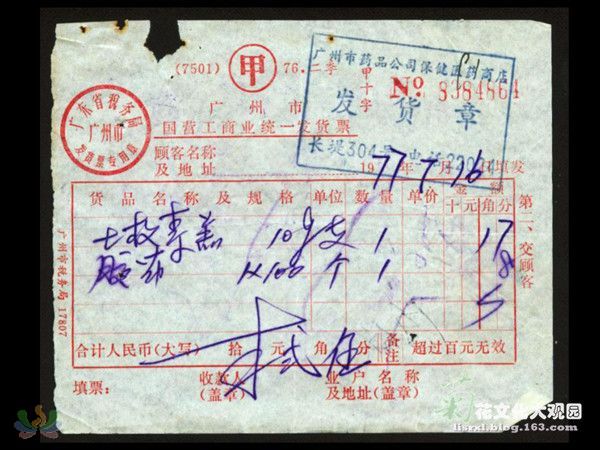 (7501) 甲 76.二季 甲十字
广州市药品公司保健医药商店
№ 8384864
发货章
长堤304号 电话22024
广东省税务局
广州市
发货票专用章
广州市
国营工商业统一发货票
顾客名称
及地址 1977年7月16日填发
货品名称及规格 单位 数量 单价 金额
十元角分
土枚素羔 10g 支 1 17
胶布 1×100 个 1 8
5
合计人民币(大写) 拾 元 贰角 伍分 备注 超过百元无效
填票: 收款人(盖章) 业户名称及地址(盖章)
第二、交顾客
广州市税务局 17807
花文化大观园
lisrxl.blog.163.com